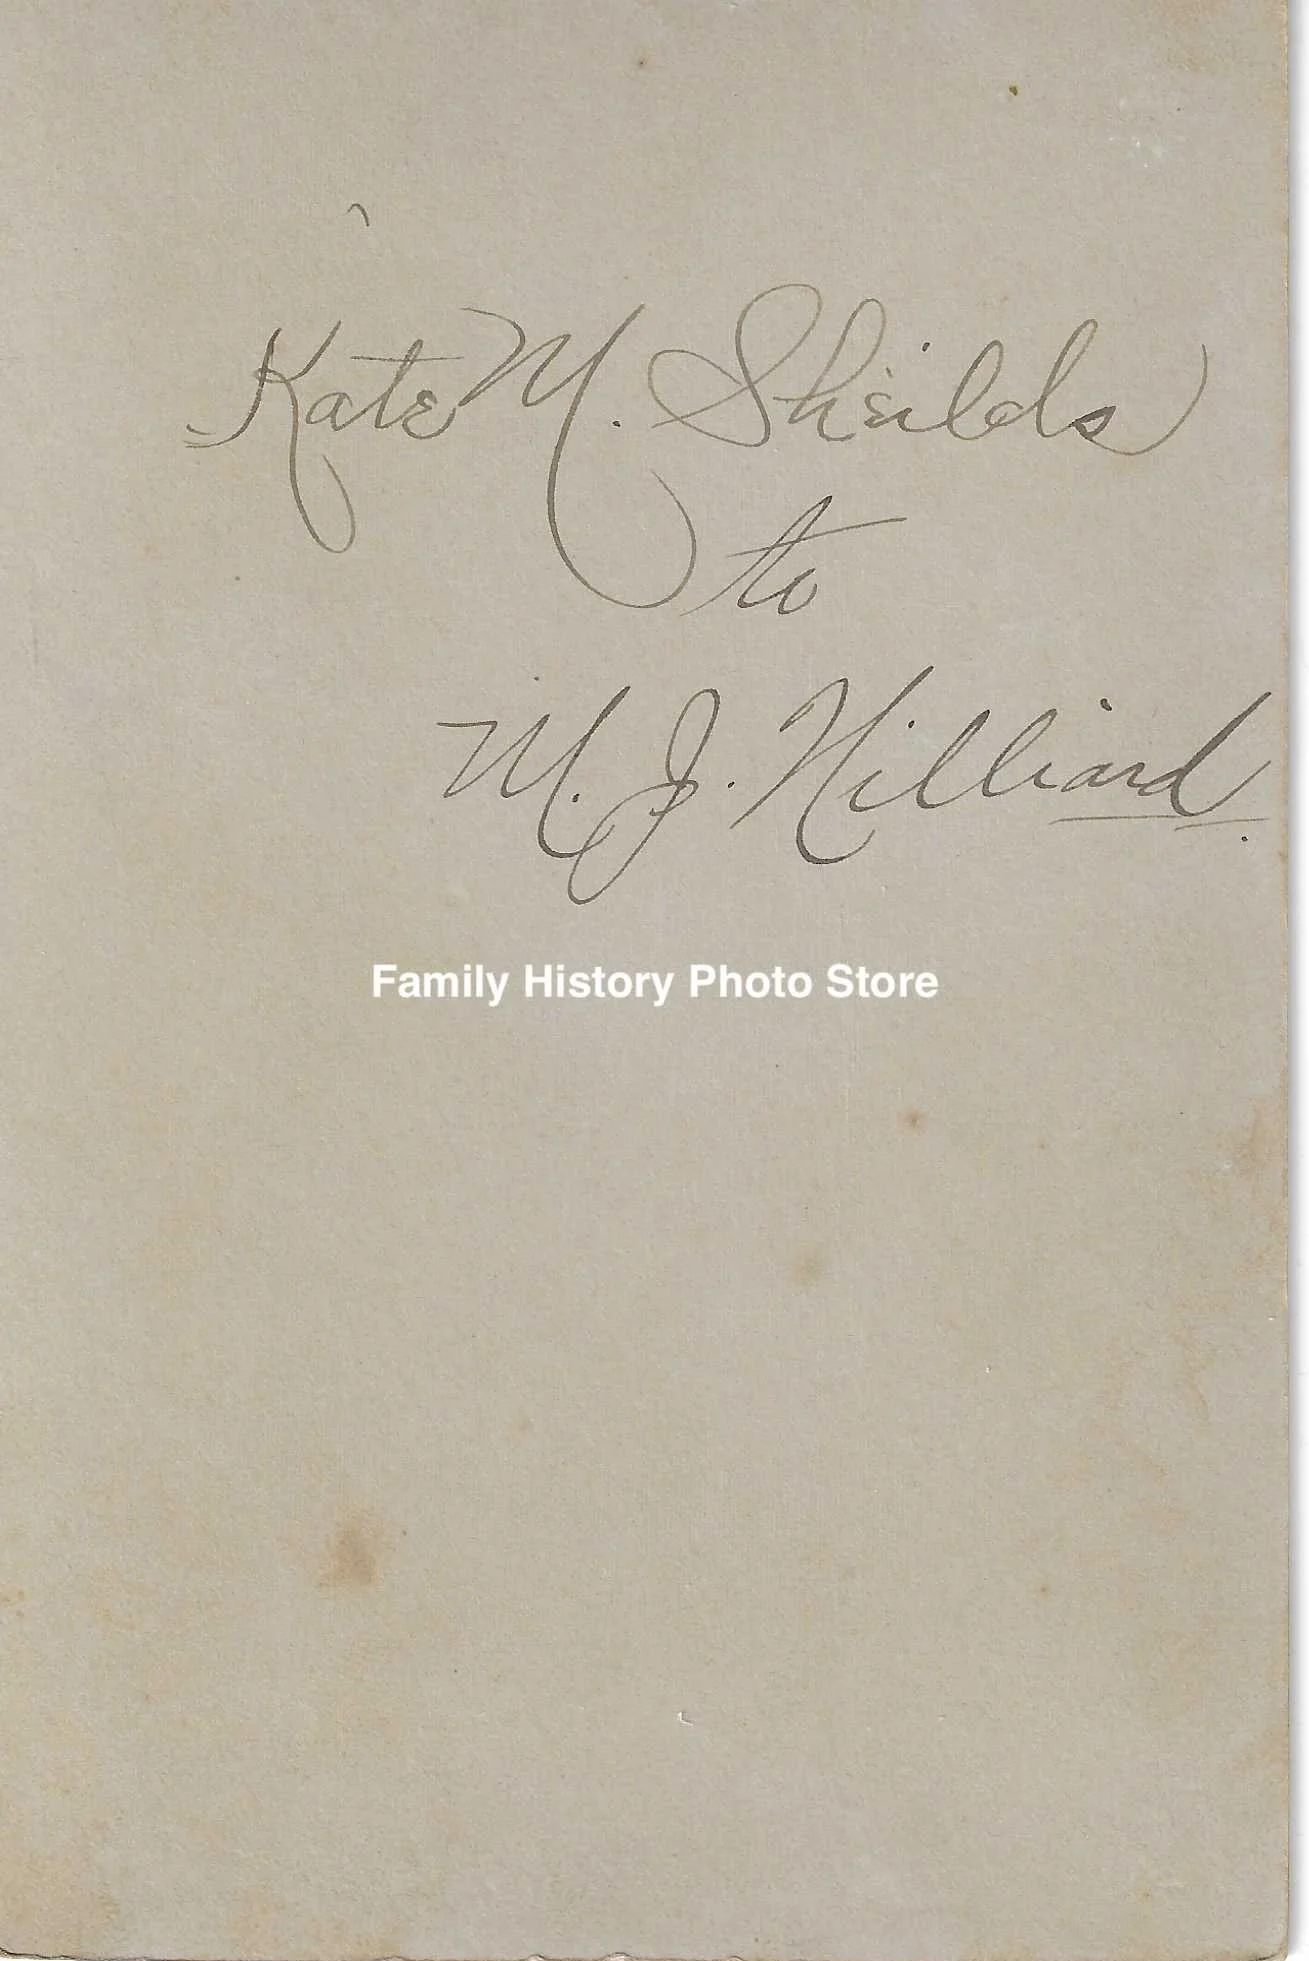 Kate M. Sheilds
to
M. J. Hilliard.
Family History Photo Store